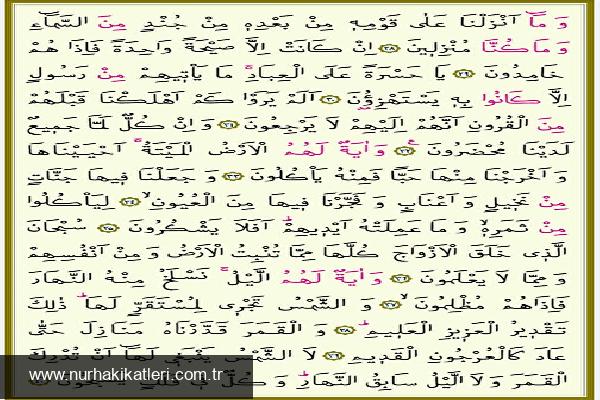 وَمَٓا اَنْزَلْنَا عَلٰى قَوْمِه۪ مِنْ بَعْدِه۪ مِنْ جُنْدٍ مِنَ السَّمَٓاءِ
وَمَا كُنَّا مُنْزِل۪ينَ ﴿٢٨﴾ اِنْ كَانَتْ اِلَّا صَيْحَةً وَاحِدَةً فَاِذَا هُمْ
خَامِدُونَ ﴿٢٩﴾ يَا حَسْرَةً عَلَى الْعِبَادِۚ مَا يَأْت۪يهِمْ مِنْ رَسُولٍ
اِلَّا كَانُوا بِه۪ يَسْتَهْزِؤُ۫نَ ﴿٣٠﴾ اَلَمْ يَرَوْا كَمْ اَهْلَكْنَا قَبْلَهُمْ
مِنَ الْقُرُونِ اَنَّهُمْ اِلَيْهِمْ لَا يَرْجِعُونَ ﴿٣١﴾ وَاِنْ كُلٌّ لَمَّا جَم۪يعٌ
لَدَيْنَا مُحْضَرُونَ۟ ﴿٣٢﴾ وَاٰيَةٌ لَهُمُ الْاَرْضُ الْمَيْتَةُۚ اَحْيَيْنَاهَا
وَاَخْرَجْنَا مِنْهَا حَبًّا فَمِنْهُ يَأْكُلُونَ ﴿٣٣﴾ وَجَعَلْنَا ف۪يهَا جَنَّاتٍ
مِنْ نَخ۪يلٍ وَاَعْنَابٍ وَفَجَّرْنَا ف۪يهَا مِنَ الْعُيُونِۙ ﴿٣٤﴾ لِيَأْكُلُوا
مِنْ ثَمَرِه۪ۙ وَمَا عَمِلَتْهُ اَيْد۪يهِمْۜ اَفَلَا يَشْكُرُونَ ﴿٣٥﴾ سُبْحَانَ
الَّذ۪ي خَلَقَ الْاَزْوَاجَ كُلَّهَا مِمَّا تُنْبِتُ الْاَرْضُ وَمِنْ اَنْفُسِهِمْ
وَمِمَّا لَا يَعْلَمُونَ ﴿٣٦﴾ وَاٰيَةٌ لَهُمُ الَّيْلُۚ نَسْلَخُ مِنْهُ النَّهَارَ
فَاِذَاهُمْ مُظْلِمُونَۙ ﴿٣٧﴾ وَالشَّمْسُ تَجْر۪ي لِمُسْتَقَرٍّ لَهَاۜ ذٰلِكَ
تَقْد۪يرُ الْعَز۪يزِ الْعَل۪يمِۜ ﴿٣٨﴾ وَالْقَمَرَ قَدَّرْنَاهُ مَنَازِلَ حَتّٰى
عَادَ كَالْعُرْجُونِ الْقَد۪يمِ ﴿٣٩﴾ لَا الشَّمْسُ يَنْبَغ۪ي لَهَٓا اَنْ تُدْرِكَ
الْقَمَرَ وَلَا الَّيْلُ سَابِقُ النَّهَارِۜ وَكُلٌّ ف۪ي فَلَكٍ يَسْبَحُونَ
www.nurhakikatleri.com.tr